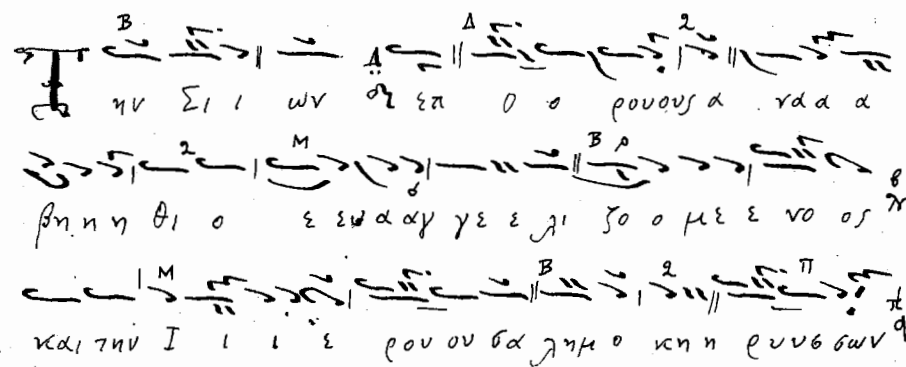 Τ ην Σι ι ων επ ο ο ρουους α ναα α
βη η η θι ο ε ευα αγ γε ε λι ζο ο με ε νο ος
και την Ι ι ι ε ρου ου σα λημ ο κη η ρυυσ σων